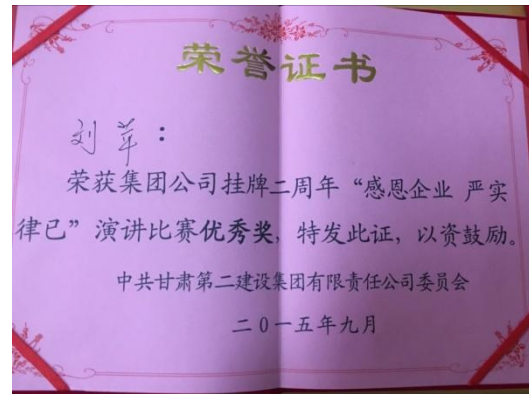 荣誉证书
刘苹：
荣获集团公司挂牌二周年“感恩企业 严实
律已”演讲比赛优秀奖，特发此证，以资鼓励。
中共甘肃第二建设集团有限责任公司委员会
二0一五年九月